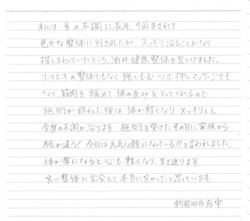 私は 首の不調に長年 悩まされて
色々な整体に行きましたが スッキリ治ることがなく
探しまわっていたところ、健康整体を見つけました。
ボキボキの整体でもなく 強くもむ ツボ押しマッサージでも
なく、筋肉を緩めて体の歪みをとってくれるので
施術が終わった後は 体が軽くなり スッキリし
全身の不調が治ります 施術を受けたその日に家族から
顔が違う！ 今日は元気な顔になっている!!と言われました。
体が楽になると心も軽くなり
良い整体に出会えて本当に良かったと思っています。
新発田市在中